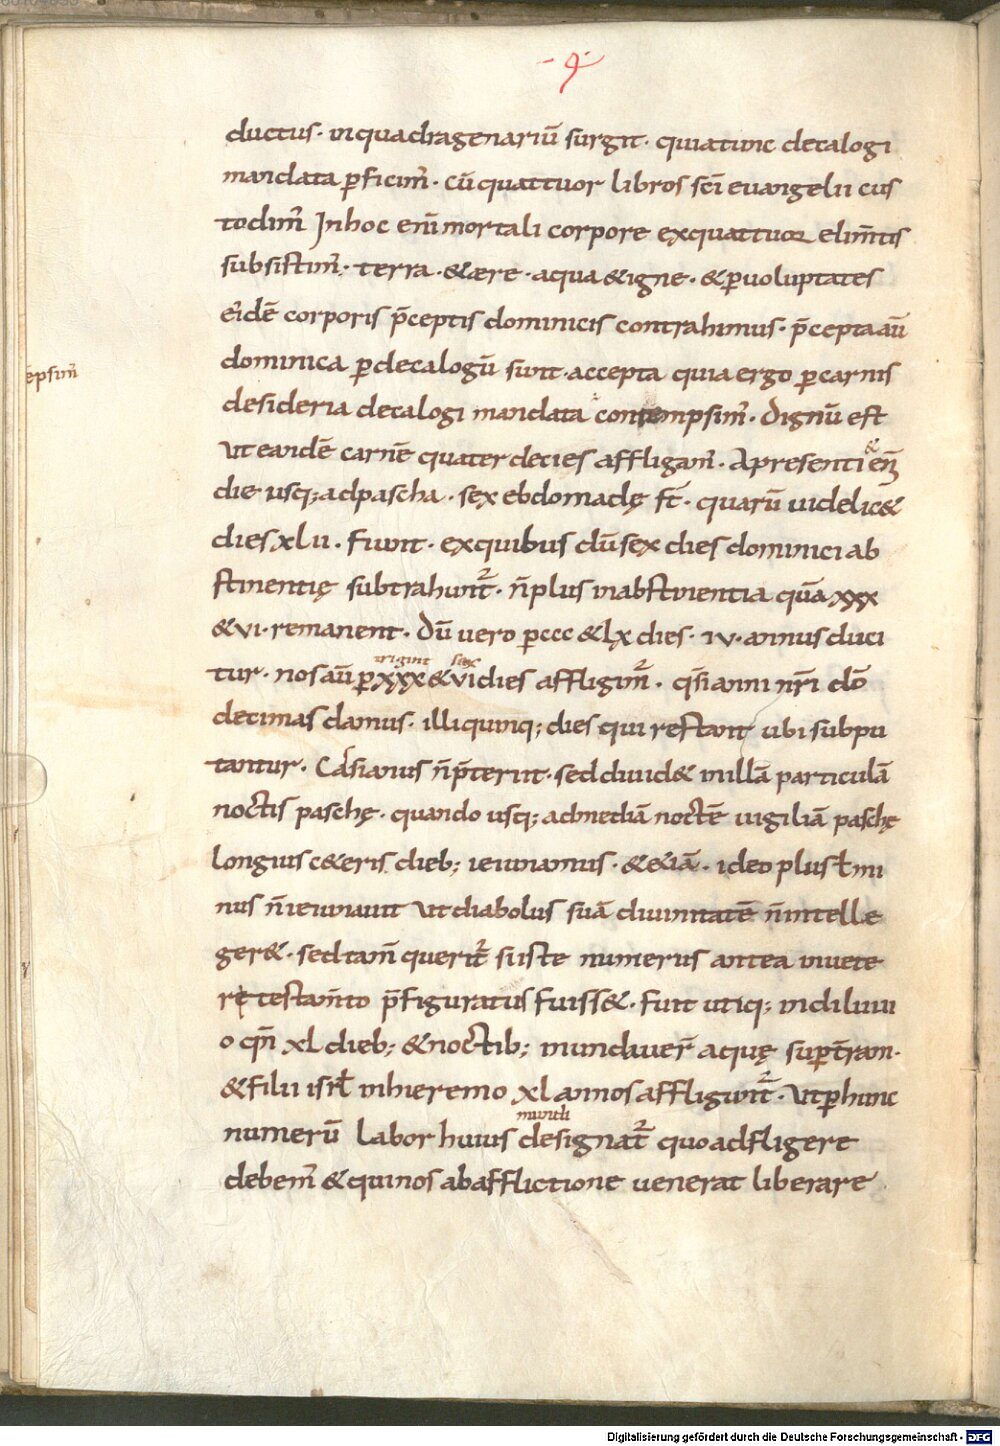 ductus· inquadragenariū surgit· quiatunc decalogi
mandata ꝑficim᷒· cū quattuor libros sc̄i euangelii cus
todim᷒ Inhoc eni̅ mortali corpore exquattuor elim̅tis
subsistim᷒· terra· &ære· aqua &igne· &ꝑuoluptates
ei᷒dē corporis p̄ceptis dominicis contrahimus· p̄cepta au̅
dominica ꝑdecalogū sunt· accepta quia ergo ꝑcarnis
epsim᷒
desideria decalogi mandata contempsim᷒· dignū est
Ut eandē carnē quater decies affligam᷒· Apresenti &eni̅
die usq; adpascha· sex ebdomadę st̄· quarū uidelic&
dies xlii· Fiunt· exquibus dū sex dies dominici ab
stinentię subtrahunt᷑· n̄plus inabstinentia quā xxx
&vi· remanent· Dū uero ꝑccc &lx dies· iv· annus duci
triginta sex
tur· nos au̅ ꝑxxx &vi dies affligim᷒· q̄si anni nr̄i dō
decimas damus· illi quinq; dies qui restant ubi subpu
tantur· Cassianus n̄p̄terit· sed diuid& in illā particulā
noctis paschę· quando usq; admediā noctē uigiliā paschę
longius c&eris dieb; ieiunamus· &&iā· ideo plus ł mi
nus n̄ieiunauit Ut diabolus suā diuinitatē n̄intelle
ger&· sed tam̄ querit᷑ si iste numerus antea inuete
re testam̄to p̄figuratus fuiss&· Fuit utiq; indiluui
o qn̄ xl dieb; &noctib; inundauer̄ aquę supt̄ram·
&filii isrł inheremo xl annos affligunt᷑· Ut ꝑhunc
mundi
numerū Labor huius designat᷑ quo adfligere
debem᷒ &quinos abafflictione uenerat liberare
Digitalisierung gefördert durch die Deutsche Forschungsgemeinschaft - DFG